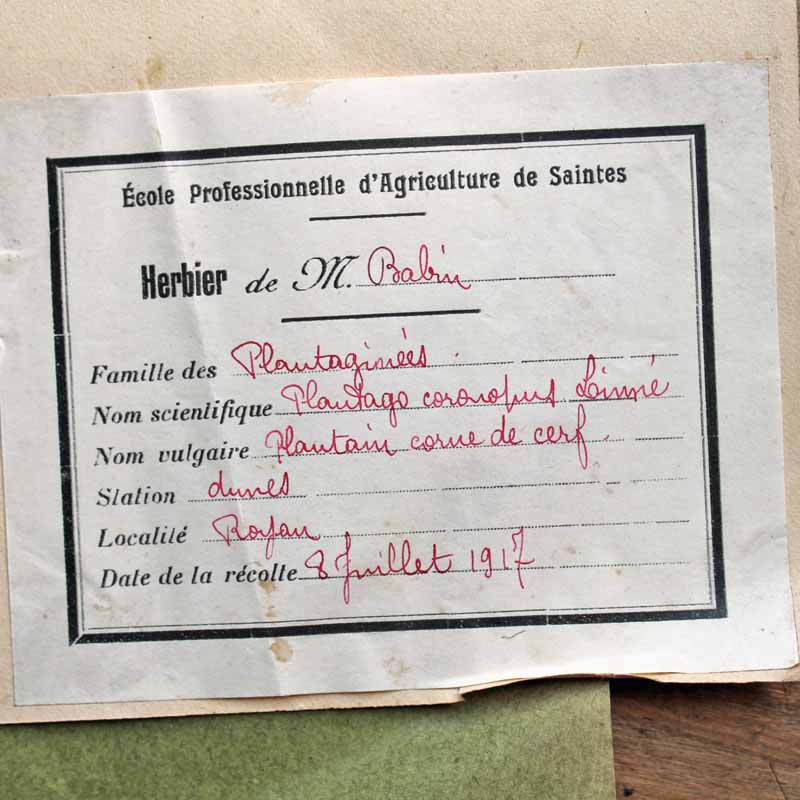 École Professionnelle d'Agriculture de Saintes
Herbier de M. Babin
Famille des Plantaginées.
Nom scientifique Plantago coronopus Linné
Nom vulgaire Plantain corne de cerf.
Station dunes
Localité Royan
Date de la récolte 8 Juillet 1917